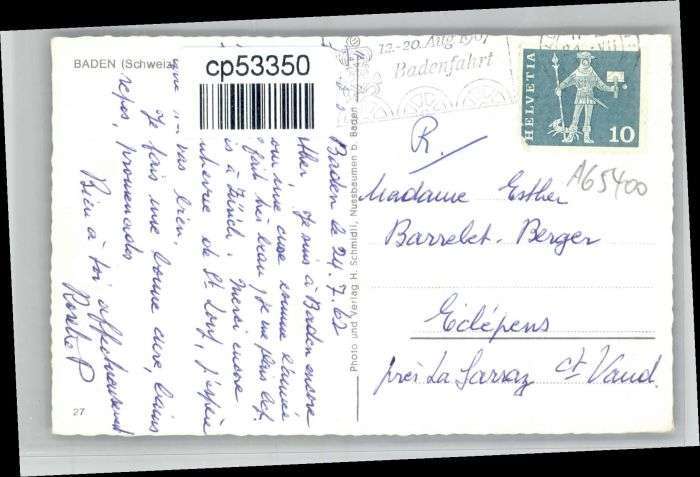 BADEN (Schweiz)
cp53350
12.-20. Aug. 1967
Badenfahrt
HELVETIA
10
R.
A65400
Madame Esther
Barrelet-Berger
Eclépens
près La Sarraz ct. Vaud.
Photo und Verlag H. Schmidli, Nussbaumen b. Baden
Baden le 24.7.67
Je suis à Baden encore
une cure comme l'année
fait très beau, je
à Zürich. Merci encore
de St. Loup, j'espère
vas bien.
Je fais une bonne cure, bains
repos, promenades.
Bien à toi affectueusement
27